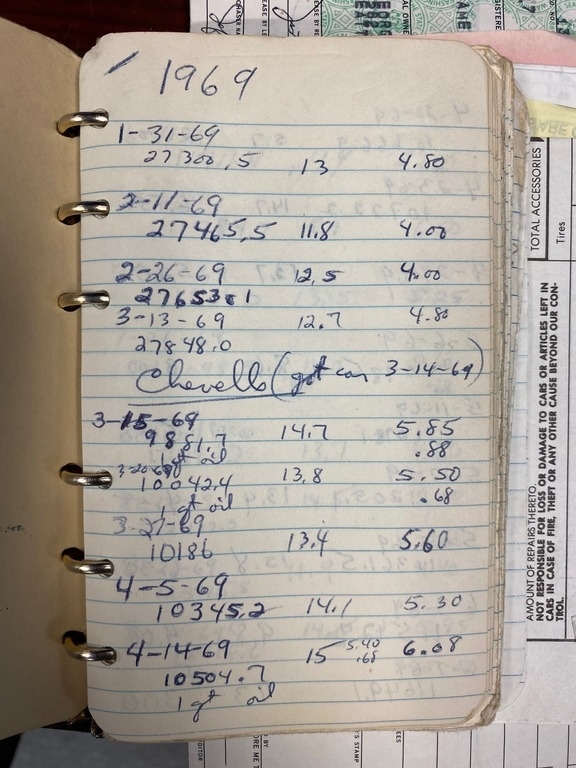 1969
1-31-69
27300.5 13 4.80
2-11-69
27465.5 11.8 4.00
2-26-69 12.5 4.00
27653.1
3-13-69 12.7 4.80
27848.0
Chevelle (got car 3-14-69)
3-15-69
9881.7 14.7 5.85
1 qt oil .88
3-20-69
10042.4 13.8 5.50
1 qt oil .68
3-27-69
10186 13.4 5.60
4-5-69
10345.2 14.1 5.30
4-14-69 15 5.40 .68 6.08
10504.7
1 qt oil
TOTAL ACCESSORIES
Tires
AMOUNT OF REPAIRS THERETO.
NOT RESPONSIBLE FOR LOSS OR DAMAGE TO CARS OR ARTICLES LEFT IN
CARS IN CASE OF FIRE, THEFT OR ANY OTHER CAUSE BEYOND OUR CON-
TROL.